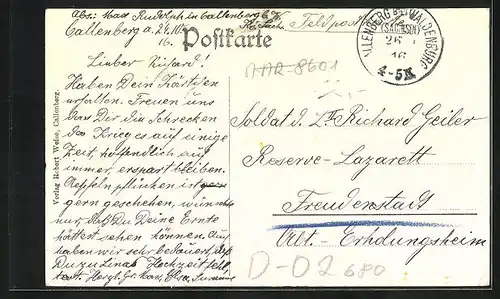 Abs: Max Rudolph in Callenberg b/
Callenberg a. 24.10.
16.
Feldpost
Postkarte
CALLENBERG B. WALDENBURG
(SACHSEN)
26
16
4-5
AAR-8601
Lieber Richard!
Haben Dein Kärtchen
erhalten. Freuen uns
das Dir die Schrecken
des Krieges auf einige
Zeit, hoffendlich auf
immer, erspart bleiben.
Aepfeln pflücken ist
gern geschehen, wünscht
nur, daß Du Deine Ernte
hättest sehen können. Auch
haben wir sehr bedauert, daß
Du zu Linas Hochzeit fehl-
test. Herzl. Gr. Max,
Verlag Robert Weise, Callenberg.
Soldat d. L. Richard Geiler
Reserve-Lazarett
Freudenstadt
Abt. Erholungsheim
D-02680